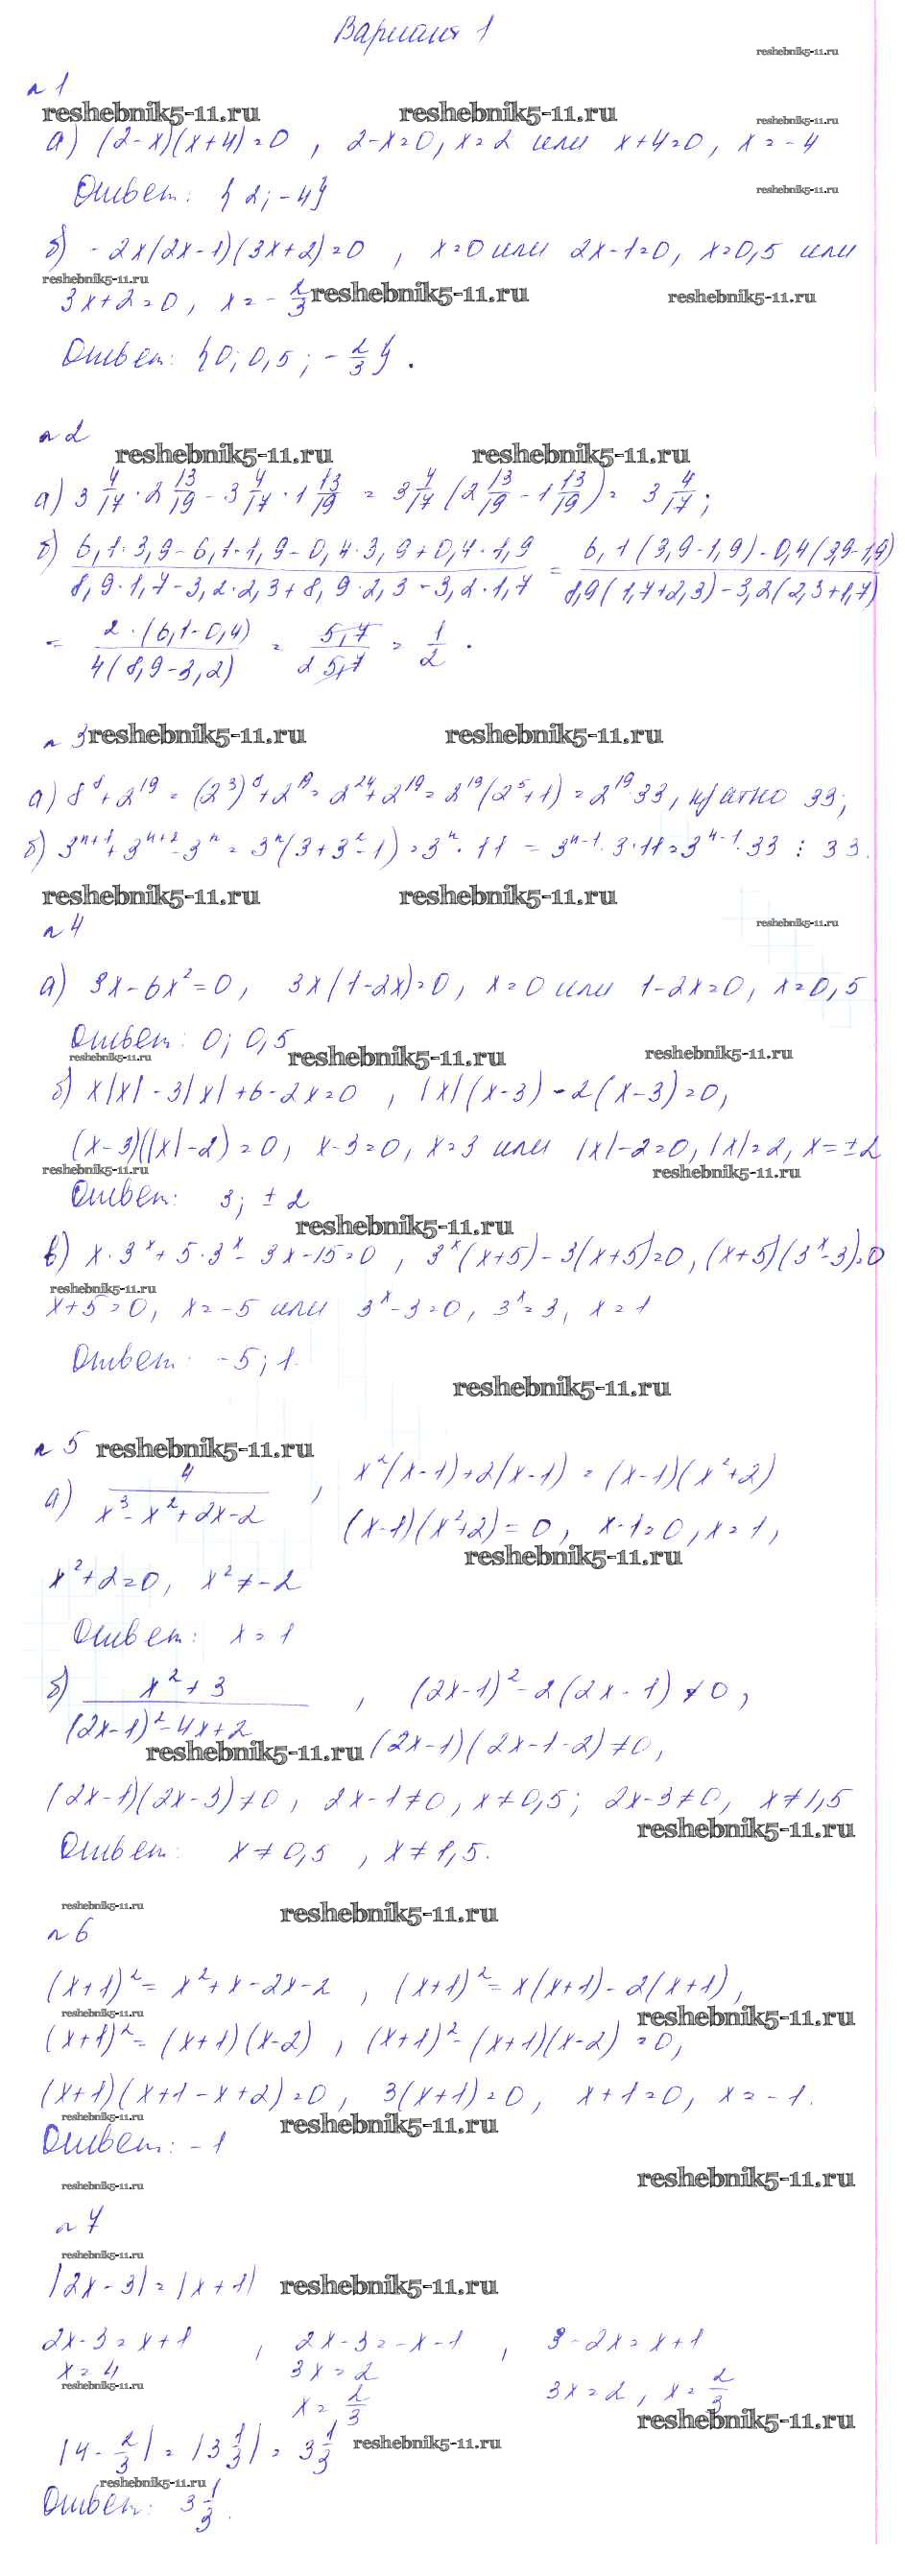 Вариант 1
reshebnik5-11.ru
№ 1
reshebnik5-11.ru reshebnik5-11.ru reshebnik5-11.ru
а) (2-x)(x+4)=0 , 2-x=0, x=2 или x+4=0, x=-4
Ответ: {2; -4} reshebnik5-11.ru
б) -2x(2x-1)(3x+2)=0 , x=0 или 2x-1=0, x=0,5 или
reshebnik5-11.ru
3x+2=0, x=-2/3 reshebnik5-11.ru reshebnik5-11.ru
Ответ: {0; 0,5; -2/3}.
№ 2
reshebnik5-11.ru reshebnik5-11.ru
а) 3 4/17 · 2 13/19 - 3 4/17 · 1 13/19 = 3 4/17 (2 13/19 - 1 13/19) = 3 4/17;
б) (6,1·3,9-6,1·1,9-0,4·3,9+0,4·1,9)/(8,9·1,7-3,2·2,3+8,9·2,3-3,2·1,7) = (6,1(3,9-1,9)-0,4(3,9-1,9))/(8,9(1,7+2,3)-3,2(2,3+1,7))
= (2·(6,1-0,4))/(4(8,9-3,2)) = 5,7/(2 5,7) = 1/2.
№ 3 reshebnik5-11.ru reshebnik5-11.ru
а) 8⁸+2¹⁹=(2³)⁸+2¹⁹=2²⁴+2¹⁹=2¹⁹(2⁵+1)=2¹⁹·33, кратно 33;
б) 3ⁿ⁺¹+3ⁿ⁺²-3ⁿ=3ⁿ(3+3²-1)=3ⁿ·11=3ⁿ⁻¹·3·11=3ⁿ⁻¹·33 ⋮ 33.
reshebnik5-11.ru reshebnik5-11.ru
№ 4 reshebnik5-11.ru
а) 3x-6x²=0, 3x(1-2x)=0, x=0 или 1-2x=0, x=0,5
Ответ: 0; 0,5
reshebnik5-11.ru reshebnik5-11.ru reshebnik5-11.ru
б) x|x|-3|x|+6-2x=0 , |x|(x-3)-2(x-3)=0,
(x-3)(|x|-2)=0, x-3=0, x=3 или |x|-2=0, |x|=2, x=±2
reshebnik5-11.ru reshebnik5-11.ru
Ответ: 3; ±2
reshebnik5-11.ru
в) x·3ˣ+5·3ˣ-3x-15=0 , 3ˣ(x+5)-3(x+5)=0, (x+5)(3ˣ-3)=0
reshebnik5-11.ru
x+5=0, x=-5 или 3ˣ-3=0, 3ˣ=3, x=1
Ответ: -5; 1.
reshebnik5-11.ru
№ 5 reshebnik5-11.ru
а) 4/(x³-x²+2x-2) , x²(x-1)+2(x-1)=(x-1)(x²+2)
(x-1)(x²+2)=0, x-1=0, x=1,
reshebnik5-11.ru
x²+2=0, x²≠-2
Ответ: x=1
б) (x²+3)/((2x-1)²-4x+2) , (2x-1)²-2(2x-1)≠0,
reshebnik5-11.ru (2x-1)(2x-1-2)≠0,
(2x-1)(2x-3)≠0, 2x-1≠0, x≠0,5; 2x-3≠0, x≠1,5
reshebnik5-11.ru
Ответ: x≠0,5 , x≠1,5.
reshebnik5-11.ru reshebnik5-11.ru
№ 6
(x+1)²=x²+x-2x-2 , (x+1)²=x(x+1)-2(x+1),
reshebnik5-11.ru reshebnik5-11.ru
(x+1)²=(x+1)(x-2) , (x+1)²-(x+1)(x-2)=0,
(x+1)(x+1-x+2)=0, 3(x+1)=0, x+1=0, x=-1.
reshebnik5-11.ru reshebnik5-11.ru
Ответ: -1
reshebnik5-11.ru reshebnik5-11.ru
№ 7
reshebnik5-11.ru
|2x-3|=|x+1| reshebnik5-11.ru
2x-3=x+1 , 2x-3=-x-1 , 3-2x=x+1
x=4 3x=2 3x=2, x=2/3
reshebnik5-11.ru x=2/3 reshebnik5-11.ru
|4-2/3|=|3 1/3|=3 1/3 reshebnik5-11.ru
reshebnik5-11.ru
Ответ: 3 1/3.